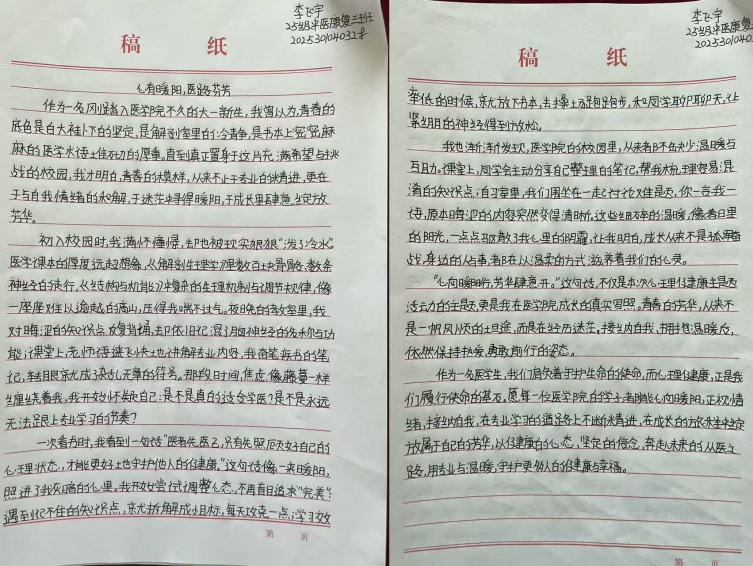 李飞宇
25级中医康复三班
20253010403228
稿 纸
心有暖阳，医路芬芳
作为一名刚踏入医学院不久的大一新生，我曾以为，青春的
底色是白大褂下的坚定，是解剖室里的冷静，是书本上密密麻
麻的医学术语堆砌的厚重。直到真正置身于这片充满希望与挑
战的校园，我才明白，青春的模样，从来不止于专业的精进，更在
于与自我情绪的和解，于迷茫中寻得暖阳，于成长里肆意绽放
芳华。
初入校园时，我满怀憧憬，却也被现实狠狠“泼了冷水”。
医学课本的厚度远超想象，从解剖生理学里数百块骨骼、数条
神经的走行，从结构与机能中复杂的生理机制与调节规律，像
一座座难以逾越的高山，压得我喘不过气。夜晚的教室里，我
对晦涩的知识点反复背诵，却依旧记混脑神经的名称与功
能；课堂上，老师语速飞快地讲解专业内容，我奋笔疾书的笔
记，转眼就成了杂乱无章的符号。那段时间，焦虑像藤蔓一样
缠绕着我，我开始怀疑自己：是不是真的适合学医？是不是永远
无法跟上专业学习的节奏？
一次看书时，我看到一句话“医者先医己，只有先照顾好自己的
心理状态，才能更好地守护他人的健康。”这句话像一束暖阳，
照进了我灰暗的心里。我开始尝试调整心态，不再盲目追求“完美”：
遇到记不住的知识点，就拆解成小目标，每天攻克一点；学习效
第 页
李飞宇
25级中医康复三
202530104032
稿 纸
率低的时候，就放下书本，去操场跑跑步，和同学聊聊天，让
紧绷的神经得到放松。
我也渐渐发现，医学院的校园里，从来都不缺少温暖与
互助。课堂上，同学会主动分享自己整理的笔记，帮我梳理易混
淆的知识点；自习室里，我们围坐在一起讨论难题，你一言我一
语，原本晦涩的内容突然变得清晰。这些细碎的温暖，像春日里
的阳光，一点点驱散了我心里的阴霾，让我明白，成长从来不是孤军奋
战，身边的人与事，都在以温柔的方式滋养着我们的心灵。
“心向暖阳行，芳华肆意开。”这句话，不仅是本次心理健康主题活
动的主题，更是我在医学院成长的真实写照。青春的芳华，从来不
是一帆风顺的坦途，而是在经历迷茫，接纳自我，拥抱温暖后，
依然保持热爱，勇敢前行的姿态。
作为一名医学生，我们肩负着守护生命的使命，而心理健康，正是我
们履行使命的基石。愿每一位医学院的学子都能心向暖阳，正视情
绪，接纳自我，在专业学习的道路上不断精进，在成长的历练中绽
放属于自己的芳华，以健康的心态，坚定的信念，奔赴未来的从医之
路，用专业与温暖，守护更多人的健康与幸福。
第 页